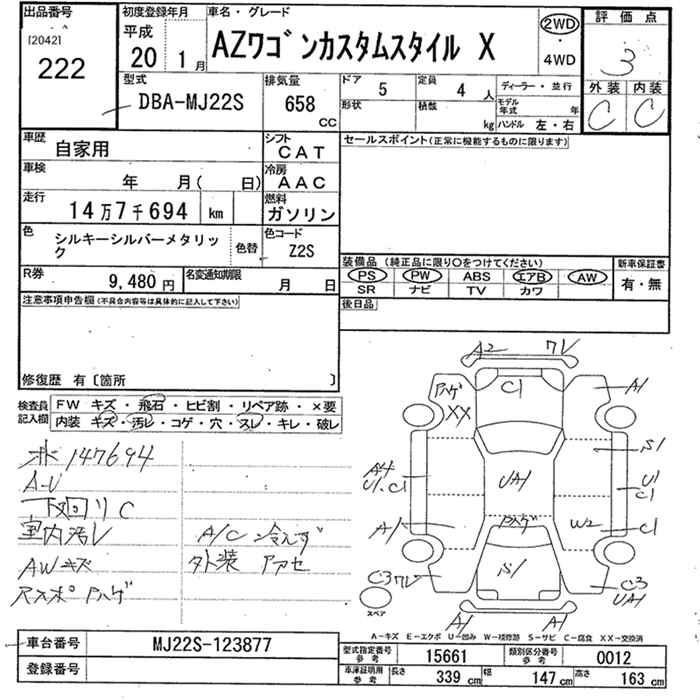 出品番号
[2042]
222
初度登録年月
平成
20 1月
車名・グレード
AZワゴンカスタムスタイル X
2WD
・
4WD
評価点
3
外装 内装
C C
型式
DBA-MJ22S
排気量
658
CC
ドア
5
形状
定員
4 人
積載
kg
ディーラー・並行
モデル年式 年
ハンドル 左・右
車歴
自家用
シフト
CAT
車検
年 月( 日)
冷房
AAC
走行
14万7千694 km
燃料
ガソリン
色
シルキーシルバーメタリック
色替
色コード
Z2S
R券
9,480 円
名変通知期限
月 日
セールスポイント(正常に機能するものに限ります)
装備品 (純正品に限り○をつけてください)
PS PW ABS エアB AW
SR ナビ TV カワ
新車保証書
有・無
後日品
注意事項申告欄(不具合内容等は具体的に記入して下さい)
修復歴 有〔箇所 〕
検査員記入欄
FW キズ・飛石・ヒビ割・リペア跡・×要
内装 キズ・汚レ・コゲ・穴・スレ・キレ・破レ
147694
A-U
下廻リC
室内汚レ
A/C 冷えず
AWキズ
外装 アセ
ハゲ
A2
ワレ
ハゲ
XX
C1
A1
S1
A4
U1.C1
UA1
U1
C1
A1
ハゲ
W2
C1
C3ワレ
S1
C3
UA1
A1
A1
スペア
A-キズ E-エクボ U-凹み W-板修跡 S-サビ C-腐食 XX-交換済
車台番号
MJ22S-123877
登録番号
型式指定番号参考
15661
類別区分番号参考
0012
車庫証明用参考
長さ 339 cm
幅 147 cm
高さ 163 cm